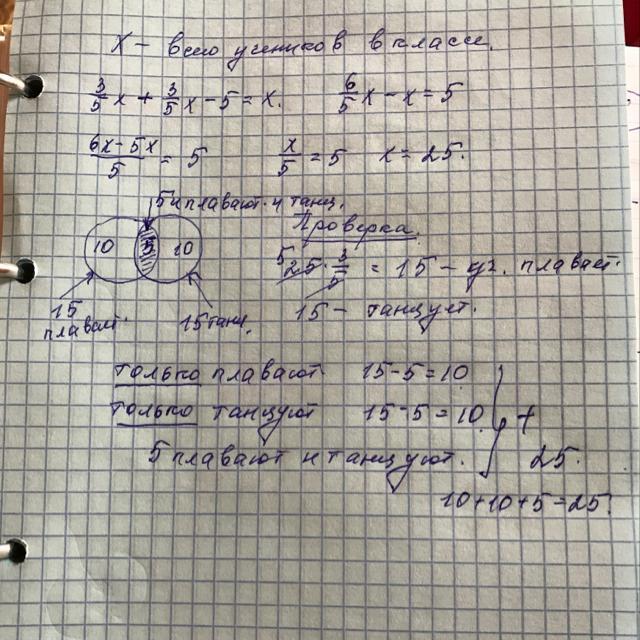 X – всего учеников в классе.
3/5 x + 3/5 x – 5 = x. 6/5 x – x = 5
6x – 5x / 5 = 5 x/5 = 5 x = 25.
5 и плавают и танц.
10 5 10
15 плавают.
15 танц.
Проверка.
5 25 · 3/5 = 15 – уч. плавает.
15 – танцует.
только плавают 15 – 5 = 10
только танцуют 15 – 5 = 10 +
5 плавают и танцуют. 25.
10 + 10 + 5 = 25.